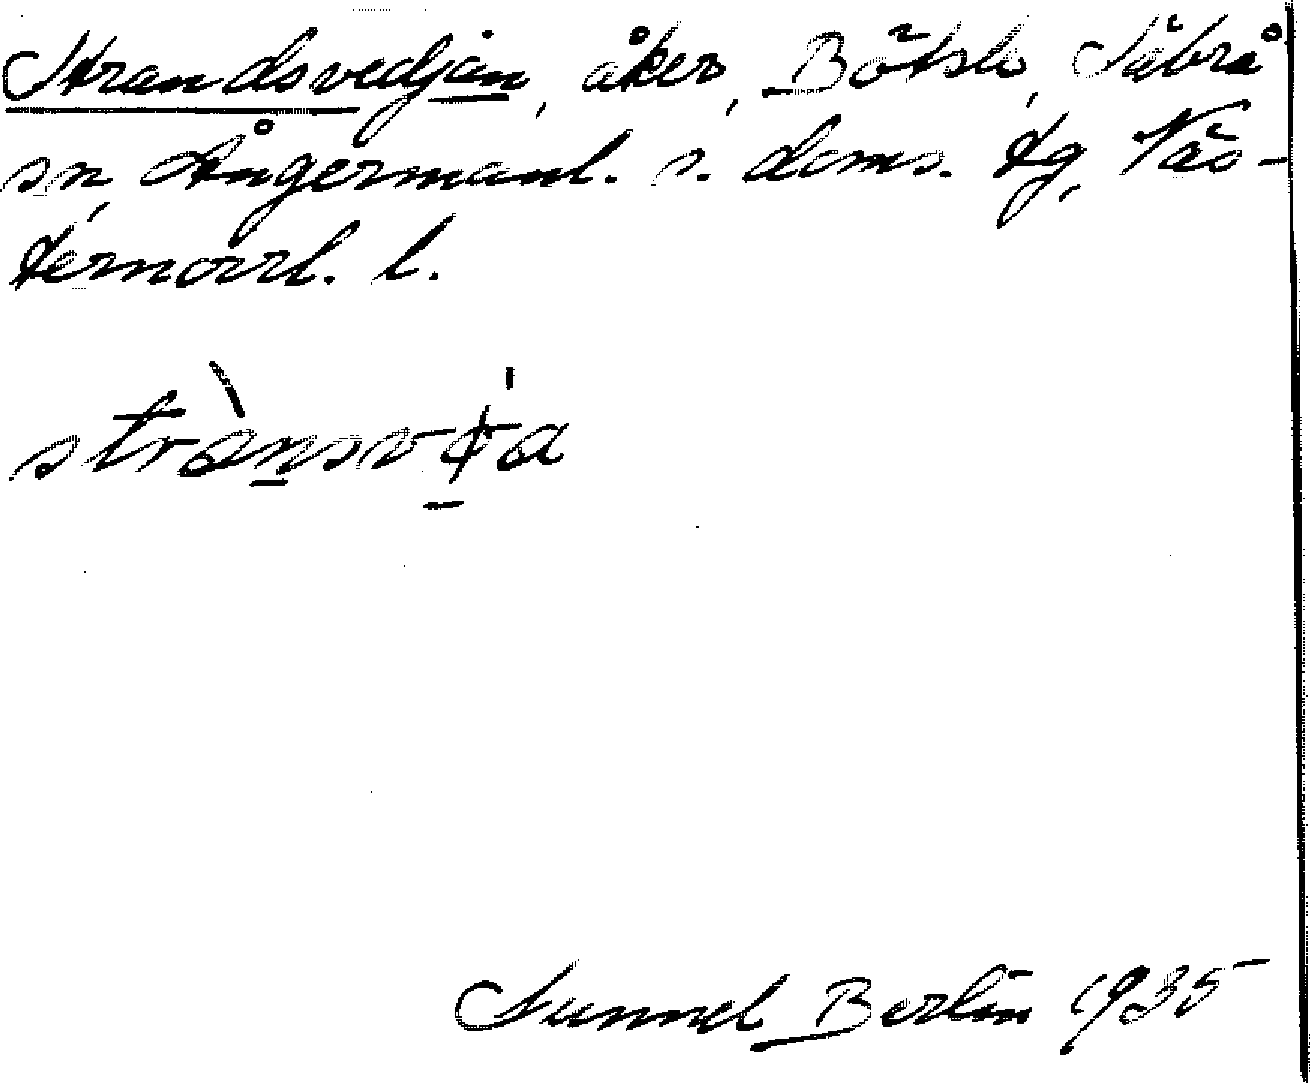 Strandsvedjan, åker, Bötsle, Säbrå
sn, Ångermanl. s. doms. tg, Väs-
ternorrl. l.
Gunnel Berlin 1935